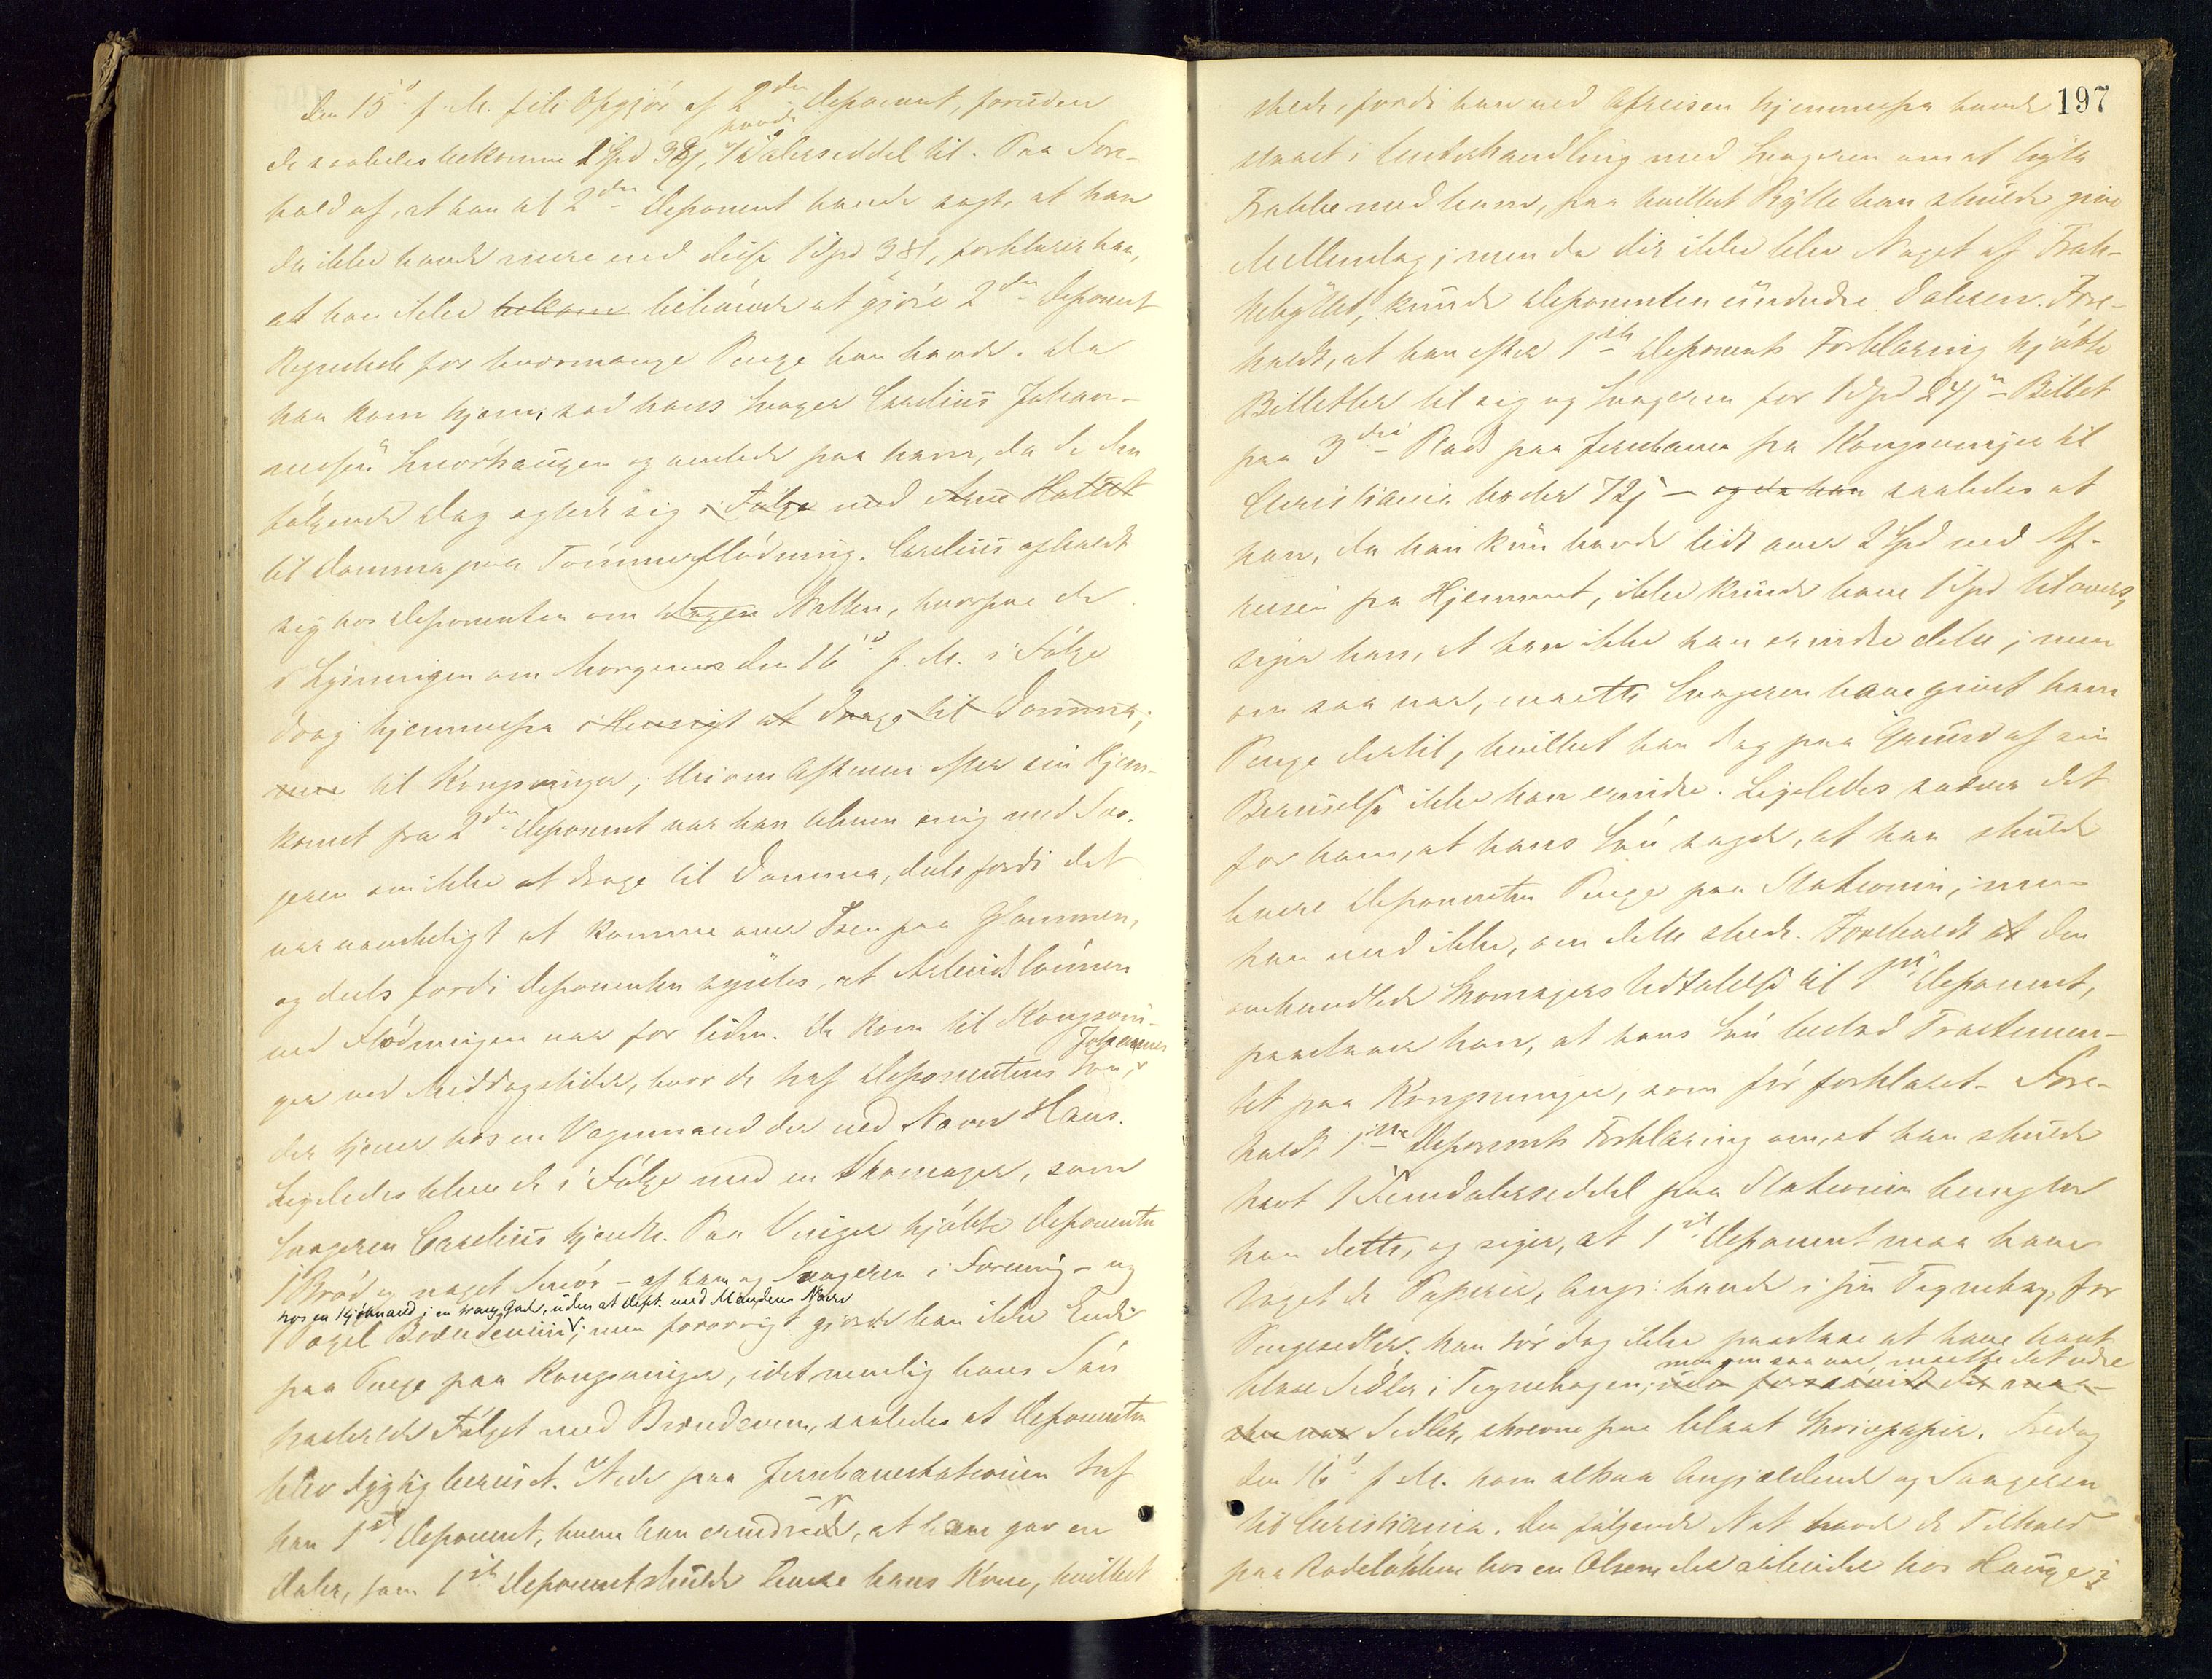 den 15de f. M. fik Opgjør af 2den Deponent, foruden
de saaledes bekomne 1 Spd 38 ß, havde 1 Dalerseddel til. Paa Fore-
hold af, at han til 2den Deponent havde sagt, at han
da ikke havde mere end disse 1 Spd 38 ß, forklarer han,
at han ikke bekom behøvede at gjøre 2den Deponent
Regnskab for hvormange Penge han havde. Da
han kom hjem, sad hans Svoger Carelius Johan-
nessen Snørhaugen og ventede paa ham, da de den
følgende Dag agtede sig i Følge med Arne
til Domma paa Tømmerflødning. Carelius opholdt
sig hos Deponenten om Dagen Natten, hvorpaa de
i Lysningen om Morgenen den 16de f. M. i Følge
drog hjemmefra i Hensigt at drage til Domma;
til Kongsvinger; thi om Aftenen efter sin Hjem-
komst fra 2den Deponent var han bleven enig med Svo-
geren om ikke at drage til Domma, dels fordi det
var vanskeligt at komme over Isen paa Glommen,
og dels fordi Deponenten syntes, at Arbeidslønnen
ved Flødningen var for liden. De kom til Kongsvin-
ger ved Middagstider, hvor de traf Deponentens Søn, Johannes
der tjener hos en Vognmand der ved Navn Hans.
Ligeledes bleve de i Følge med en Skomager, som
Svogeren Carelius kjendte. Paa Vinger kjøbte Deponenten
1 Brød og noget Smør – af ham og Svogeren i Forening – og
hos en Kjøbmand i en trang Gade, uden at Dept. ved Mandens Navn
1 Pægel Brændeviin; men forøvrigt gjorde han ikke Ende
paa Penge paa Kongsvinger, idet nemlig hans Søn
trakterede Følget med Brændeviin, saaledes at Deponenten
blev dygtig beruset. Nede paa Jernbanestationen traf
han 1ste Deponent, hvem han erindrede, at han gav en
Daler, som 1ste Deponent skulde bringe hans Kone, hvilket
197
skede, fordi han ved Afreisen hjemmefra havde
staaet i Underhandling med Svogeren om at bytte
Frakke med ham, paa hvilket Bytte han skulde give
Mellemlag; men da der ikke blev Noget af Frak-
kebyttet, kunde Deponenten undvære Daleren. Fore-
holdt, at han efter 1ste Deponents Forklaring kjøbte
Billetter til sig og Svogeren for 1 Spd 24 ß – Billet
paa 3die Plads paa Jernbanen fra Kongsvinger til
Christiania koster 72 ß – og da han saaledes at
han, da han kun havde lidt over 2 Spd ved Af-
reisen fra Hjemmet, ikke kunde have 1 Spd tilovers,
siger han, at han ikke kan erindre dette; men
om saa var, maatte Svogeren have givet ham
Penge dertil, hvilket han dog paa Grund af sin
Beruselse ikke kan erindre. Ligeledes det
for ham, at hans Søn sagde, at han skulde
laane Deponenten Penge paa Stationen; men
han ved ikke, om dette skede. Foreholdt at den
omhandlede Skomagers Udtalelse til 1ste Deponent,
paastaaer han, at hans Søn bestred Traktemen-
tet paa Kongsvinger, som før forklaret. Fore-
holdt 1ste Deponents Forklaring om, at han skulde
havt 1 Femdalerseddel paa Stationen benegter
han dette, og siger, at 1ste Deponent maa have
taget de Papirer, Angj. havde i sin Tegnebog, for
Pengesedler. Han tør dog ikke paastaae at have havt
men om saa var, maatte det være
blaae Sedler i Tegnebogen;
Sedler, skrevne paa blaat Skrivpapir. Fredag
den 16de f. M. kom altsaa Angjældende og Svogeren
til Christiania. Den følgende Nat havde de Tilhold
paa Rodeløkken hos en Olsen der arbeider hos Hauge i